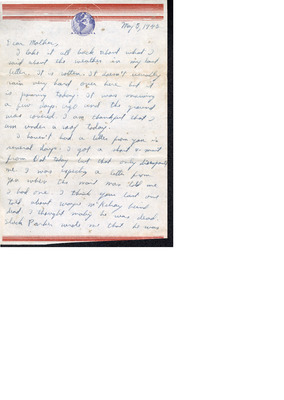 May 5, 1943
Dear Mother,
I take it all back about what I
said about the weather in my last
letter, it is rotten. It doesn't usually
rain very hard over here but it
is pouring today. It was raining
a few days ago and the ground
was soaked. I am thankful that I
am under a roof today.
I haven't had a letter from you in
several days. I got a short v-mail
from Dad today but that only
me. I was expecting a letter from
you when the mail man told me
I had one. I think your last one
told about Wayne being
dead. I thought maybe he was dead.
Parker wrote me that he was